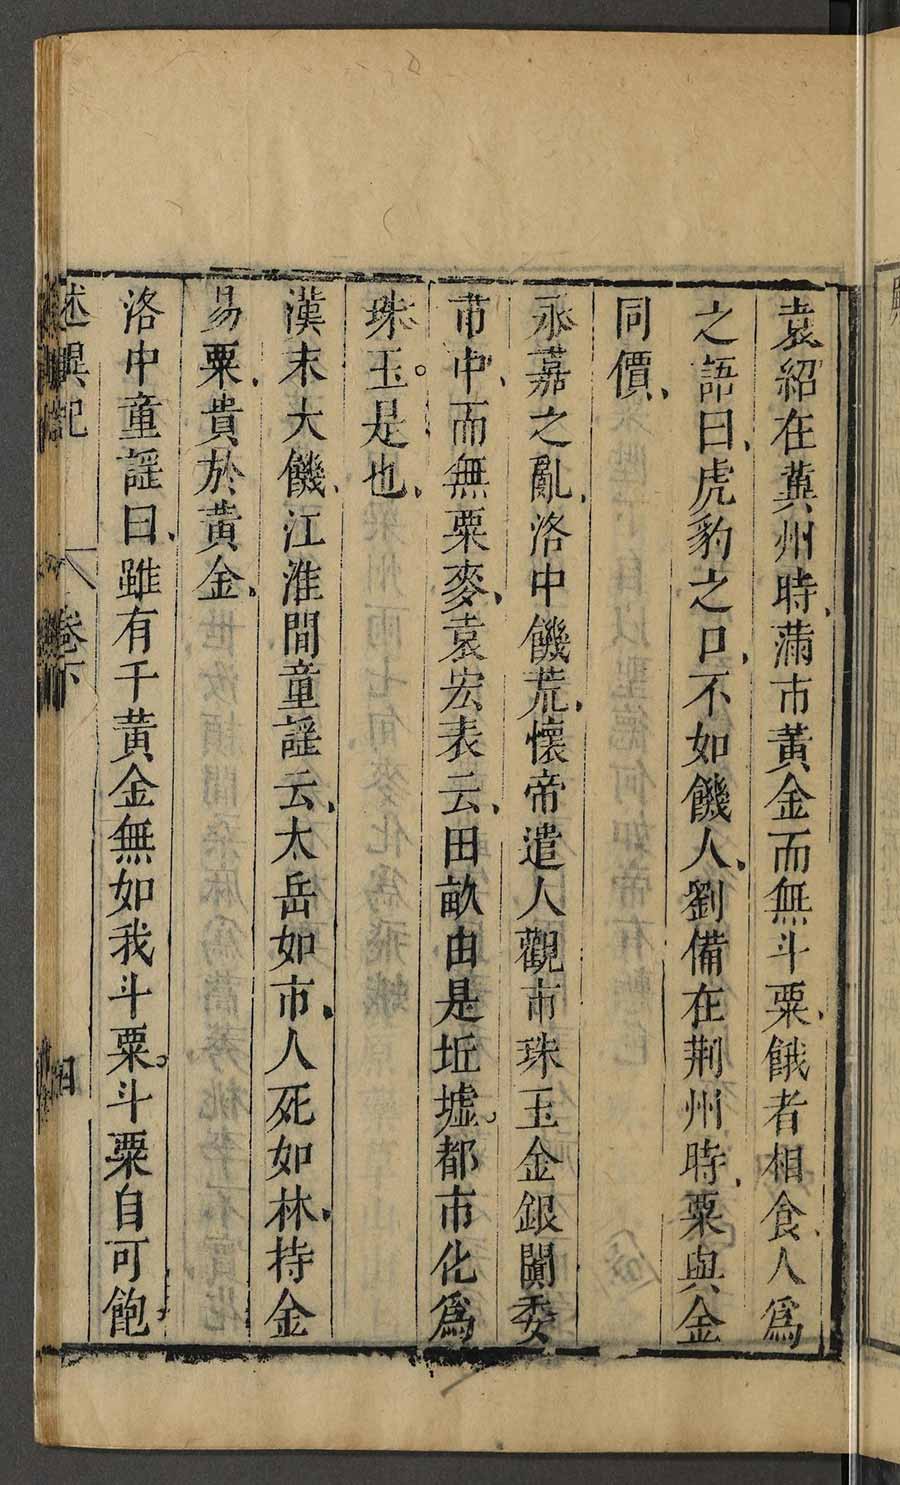 袁紹在冀州時、滿市黃金而無斗粟、餓者相食、人爲
之語曰、虎豹之口、不如饑人、劉備在荆州時、粟與金
同價、
永嘉之亂、洛中饑荒、懷帝遣人觀市珠玉金銀闐委
市中、而無粟麥、袁宏表云、田畝由是坵墟。都市化爲
珠玉。是也、
漢末大饑、江淮間童謡云、太岳如市、人死如林、持金
易粟、貴於黃金、
洛中童謡曰、雖有千黃金無如我斗粟。斗粟自可飽、
述異記 卷下 四